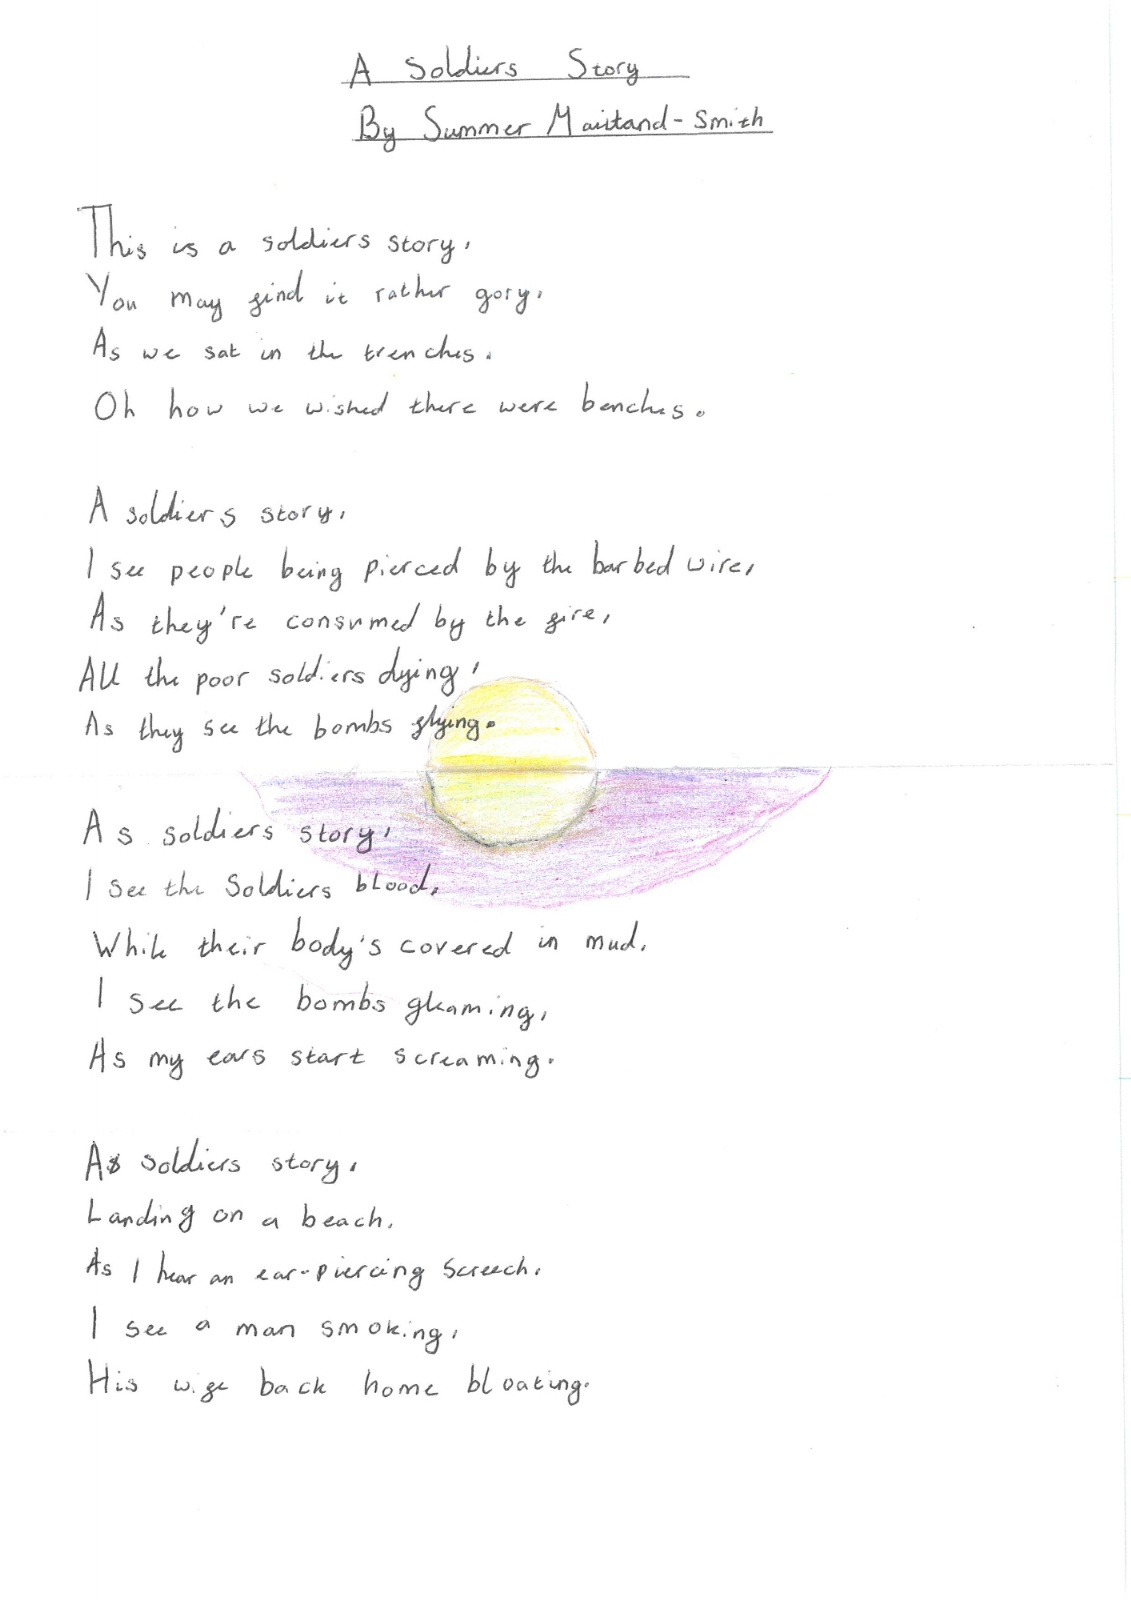 A Soldiers Story
By Summer Maitland-Smith
This is a soldiers story,
You may find it rather gory,
As we sat in the trenches.
Oh how we wished there were benches.
A soldiers story,
I see people being pierced by the barbed wire,
As they're consumed by the fire,
All the poor soldiers dying,
As they see the bombs flying.
As soldiers story,
I see the Soldiers blood,
While their body's covered in mud.
I see the bombs gleaming,
As my ears start screaming.
As soldiers story,
Landing on a beach,
As I hear an ear-piercing screech,
I see a man smoking,
His wife back home bloating.